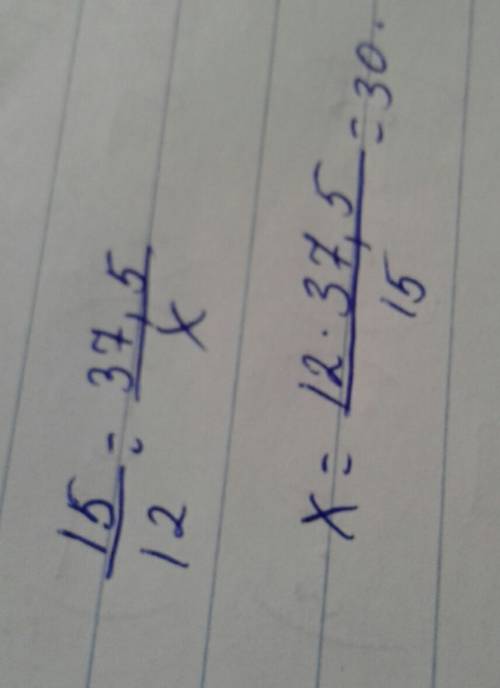 15/12 = 37,5/x
x = 12 · 37,5/15 = 30.